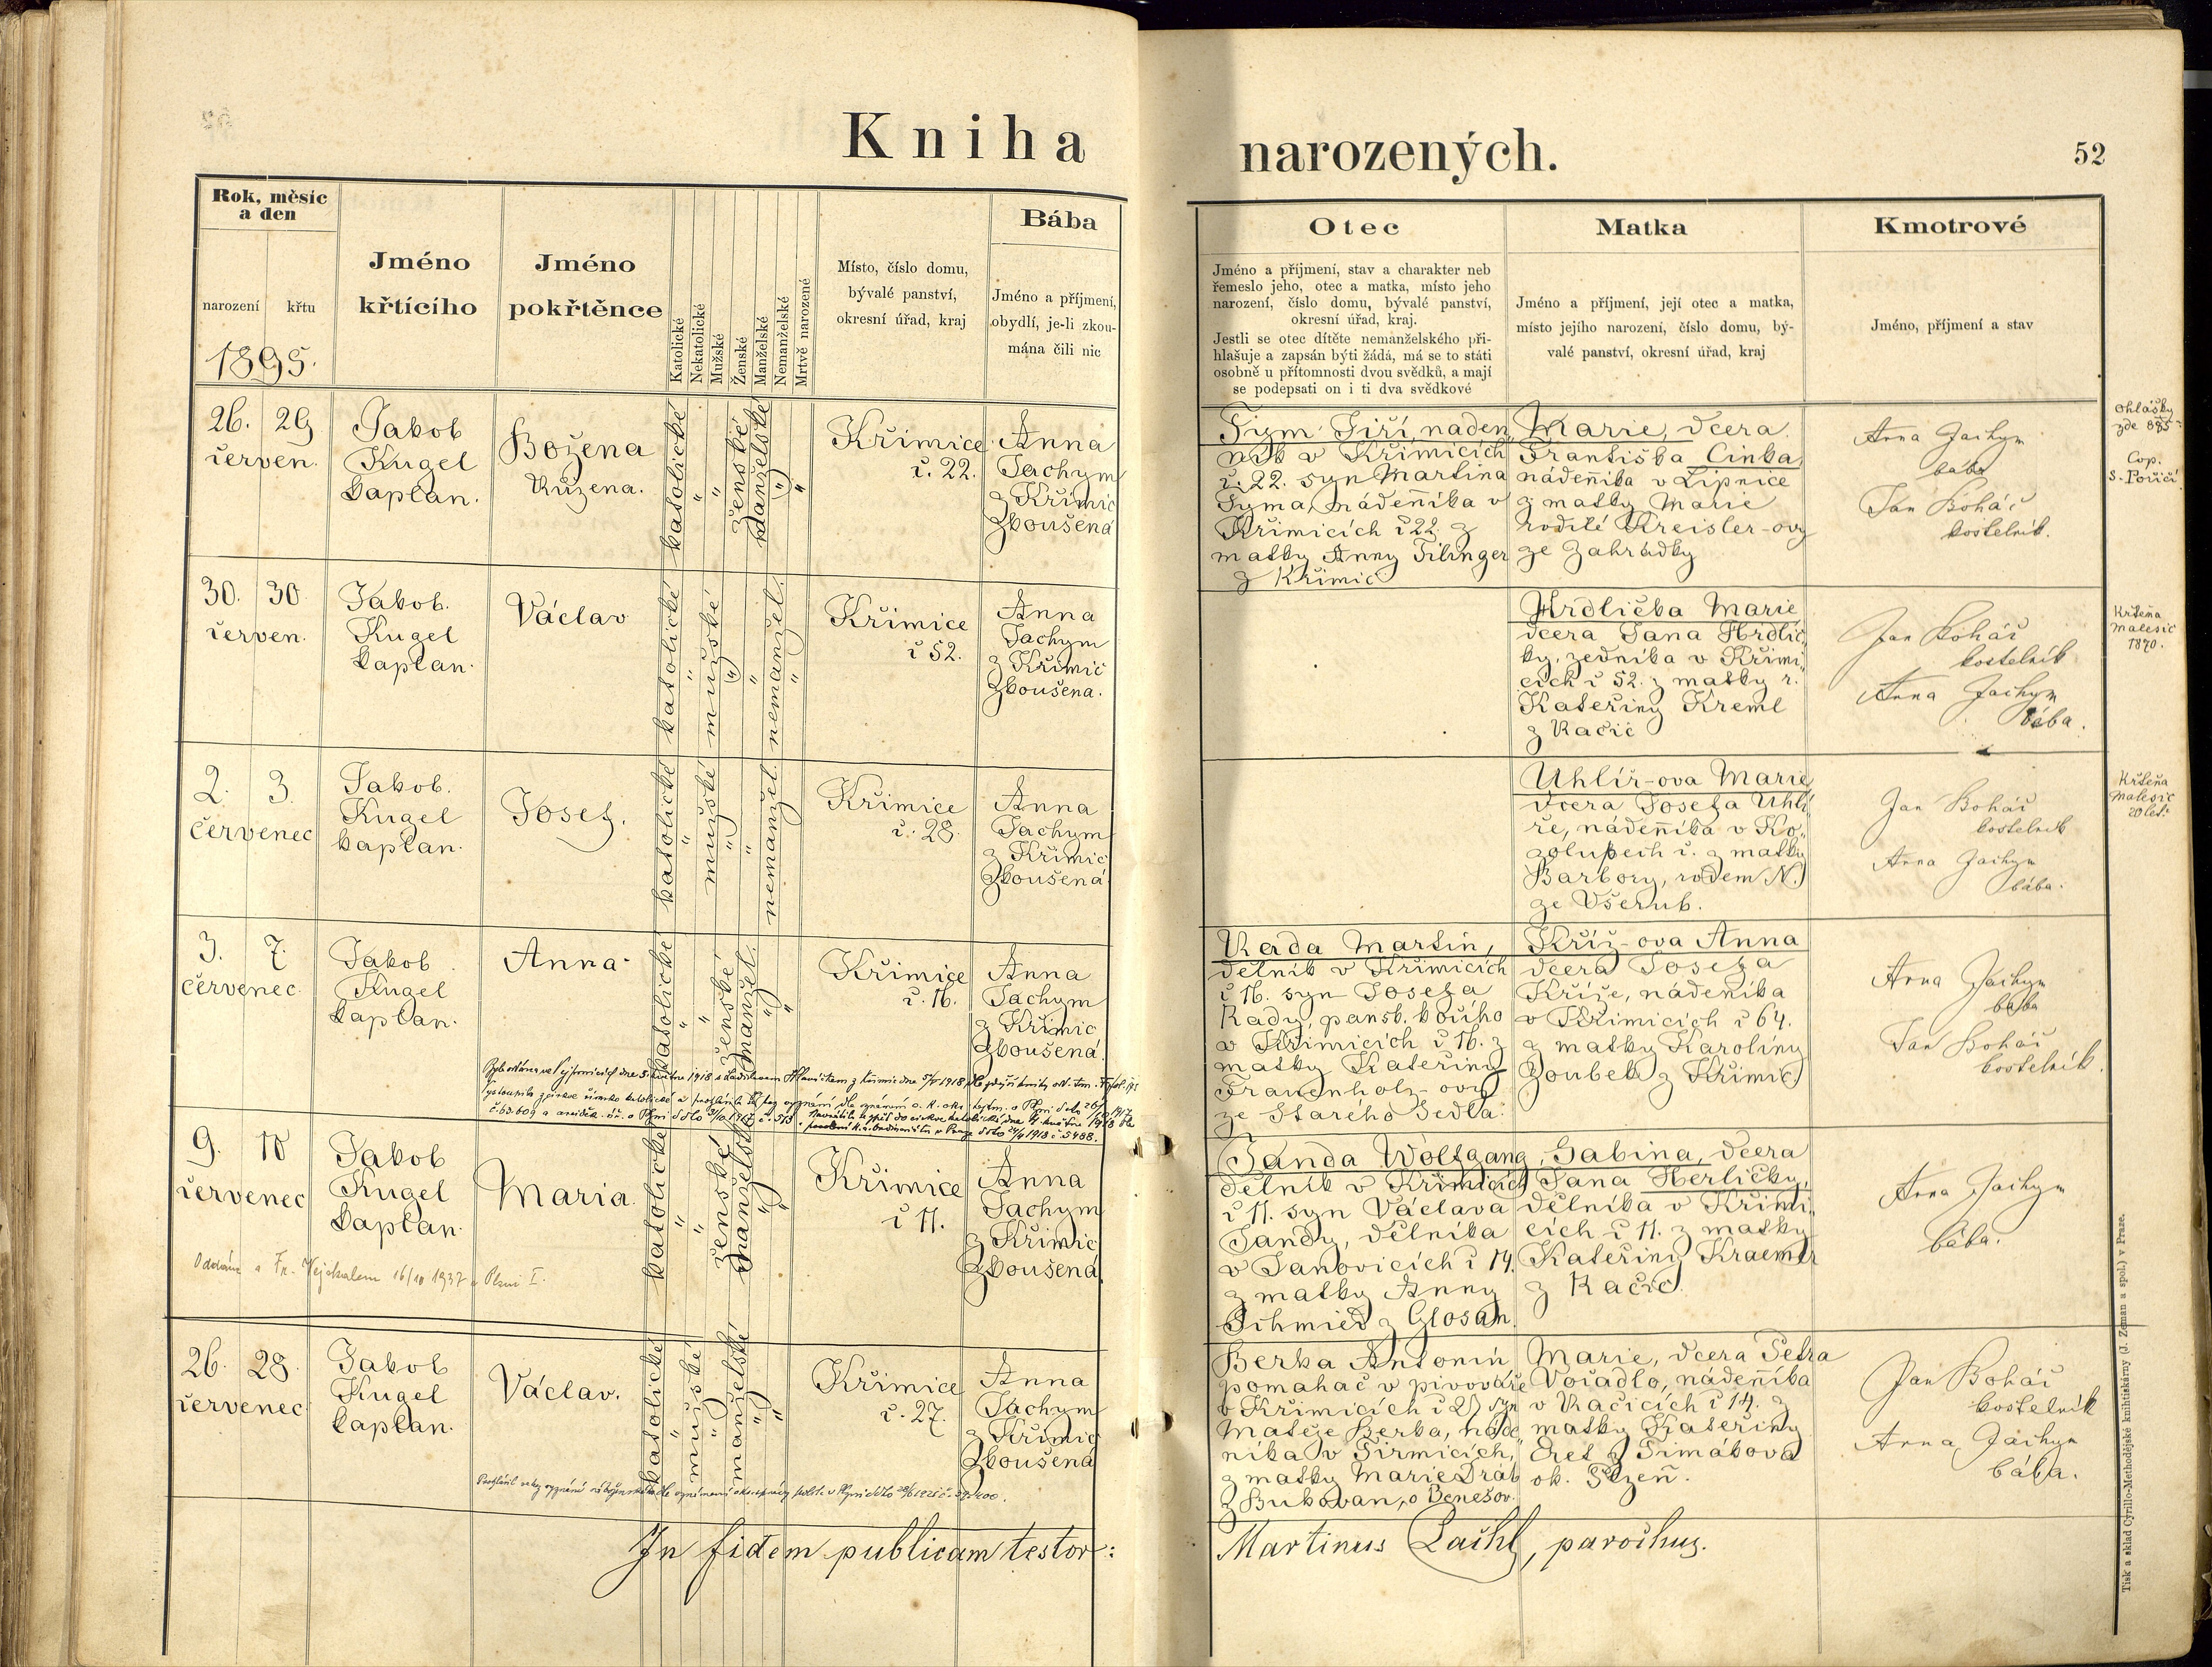 Kniha narozených.
52
Rok, měsíc
a den
narození křtu
1895.
Jméno
křtícího
Jméno
pokřtěnce
Katolické
Nekatolické
Mužské
Ženské
Manželské
Nemanželské
Mrtvě narozené
Místo, číslo domu,
bývalé panství,
okresní úřad, kraj
Bába
Jméno a příjmení,
obydlí, je-li zkou-
mána čili nic
Otec
Jméno a příjmení, stav a charakter neb
řemeslo jeho, otec a matka, místo jeho
narození, číslo domu, bývalé panství,
okresní úřad, kraj.
Jestli se otec dítěte nemanželského při-
hlašuje a zapsán býti žádá, má se to státi
osobně u přítomnosti dvou svědků, a mají
se podepsati on i ti dva svědkové
Matka
Jméno a příjmení, její otec a matka,
místo jejího narození, číslo domu, bý-
valé panství, okresní úřad, kraj
Kmotrové
Jméno, příjmení a stav
26. 29
červen.
Jakob
Kugel
kaplan.
Božena
Růžena.
katolické
"
"
ženské
manželské
"
"
Křimice
č. 22.
Anna
Jachym
z Křimic
zkoušená
Tym Jiří, náden
ník v Křimicích
č. 22. syn Martina
Tyma, nádeníka v
Křimicích č 22. z
matky Anny Tilinger
z Křimic
Marie, dcera
Františka Cinka,
nádeníka v Lipnice
z matky Marie
rodilé Kreisler-ovy
ze Zahrádky
Anna Jachym
bába
Jan Boháč
kostelník.
Ohlášky
zde 895
Cop.
S. Poříčí
30. 30
červen.
Jakob.
Kugel
kaplan.
Václav
katolické
"
mužské
"
"
nemanžel.
"
Křimice
č 52.
Anna
Jachym
z Křimic
zkoušena.
Hrdlička Marie
dcera Jana Hrdlič
ky, zedníka v Křimi,
cích č 52. z matky r.
Kateřiny Kreml
z Račic
Jan Boháč
kostelník
Anna Jachym
bába.
Křtěna
Malesic
1870.
2. 3.
červenec
Jakob.
Kugel
kaplan.
Josef.
katolické
"
mužské
"
"
nemanžel.
Křimice
č. 28.
Anna
Jachym
z Křimic
zkoušená
Uhlíř-ova Marie
dcera Josefa Uhlí
ře, nádeníka v Ko,
zolupech č. z matky
Barbory, rodem N.
ze Všerub.
Jan Boháč
kostelník
Anna Jachym
bába.
Křtěna
Malesic
20 let.
3. 7.
červenec
Jakob
Kugel
kaplan.
Anna
katolické
"
"
ženské
manžel.
"
"
Křimice
č. 16.
Anna
Jachym
z Křimic
zkoušená.
Rada Martin,
dělník v Křimicích
č 16. syn Josefa
Rady, pansk. kočího
v Křimicích č 16. z
matky Kateřiny
Frauenholz-ovy
ze Starého Sedla.
Kříž-ova Anna
dcera Josefa
Kříže, nádeníka
v Křimicích č 64.
z matky Karolíny
Zoubek z Křimic.
Anna Jachym
bába
Jan Boháč
kostelník.
9. 10
červenec
Jakob
Kugel
kaplan.
Maria
katolické
"
"
ženské
manželské
"
"
Křimice
č 11.
Anna
Jachym
z Křimic
zkoušená.
Oddána s Fr. Vejskalem 16/10 1937 v Plzni I.
Janda Wolfgang,
dělník v Křimicích
č 11. syn Václava
Jandy, dělníka
v Janovicích č 14.
z matky Anny
Schmied z Glosan.
Sabina, dcera
Jana Herličky,
dělníka v Křimi,
cích č 11. z matky
Kateřiny Kraemer
z Račic.
Anna Jachym
bába.
26. 28.
červenec
Jakob
Kugel
kaplan.
Václav.
katolické
"
mužské
"
manželské
"
"
Křimice
č. 27.
Anna
Jachym
z Křimic
zkoušená
Berka Antonín
pomahač v pivováře
v Křimicích č 27 syn
Matěje Berka, náde
níka v Jirmicích,
z matky Marie Dráb
z Bukovan, o Benešov.
Marie, dcera Petra
Voiadlo, nádeníka
v Račicích č 14. z
matky Kateřiny
Eret z Timákova
ok. Plzeň.
Jan Boháč
kostelník
Anna Jachym
bába.
In fidem publicam testor:
Martinus Lachl, parochus.
Tisk a sklad Cyrillo-Methodějské knihtiskárny (J. Zeman a spol.) v Praze.